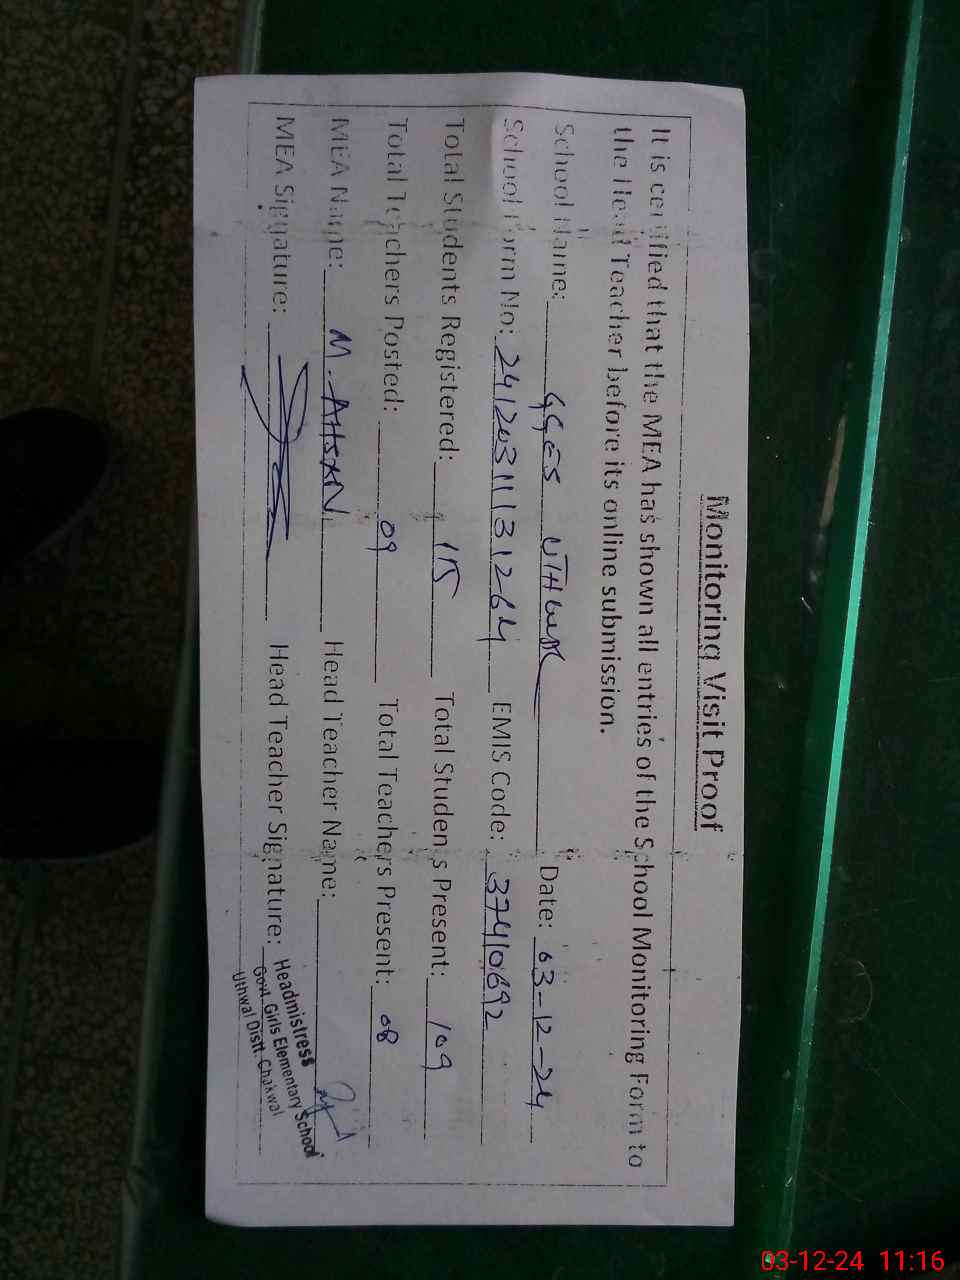 Monitoring Visit Proof
It is certified that the MEA has shown all entries of the School Monitoring Form to
the Head Teacher before its online submission.
School Name: GGES UTHWAL Date: 03-12-24
School Form No: 2412031131264 EMIS Code: 37410692
Total Students Registered: 115 Total Students Present: 109
Total Teachers Posted: 09 Total Teachers Present: 08
MEA Name: M. AHSAN Head Teacher Name:
MEA Signature: Head Teacher Signature:
Headmistress
Govt. Girls Elementary School
Uthwal Distt. Chakwal
03-12-24 11:16